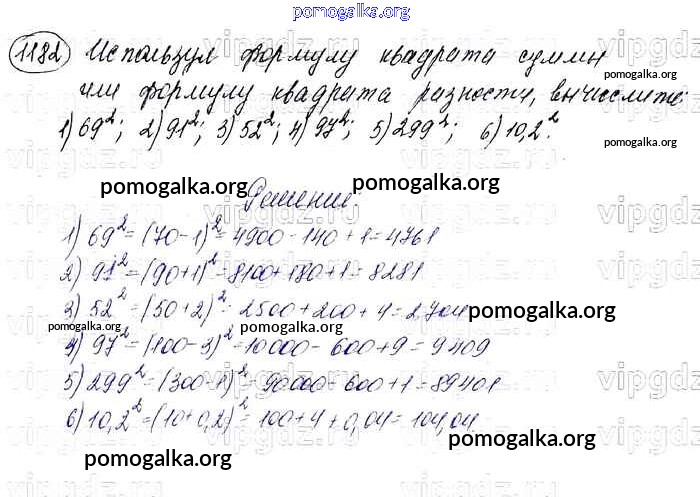 pomogalka.org
1182 Используя формулу квадрата суммы
pomogalka.org
или формулу квадрата разности, вычислите:
pomogalka.org
1) 69²; 2) 91²; 3) 52²; 4) 97²; 5) 299²; 6) 10,2².
pomogalka.org pomogalka.org
Решение.
1) 69² = (70-1)² = 4900 - 140 + 1 = 4761
2) 91² = (90+1)² = 8100 + 180 + 1 = 8281
3) 52² = (50+2)² = 2500 + 200 + 4 = 2704
pomogalka.org
pomogalka.org pomogalka.org
4) 97² = (100-3)² = 10000 - 600 + 9 = 9409
5) 299² = (300-1)² = 90000 - 600 + 1 = 89401
6) 10,2² = (10+0,2)² = 100 + 4 + 0,04 = 104,04.
pomogalka.org
pomogalka.org